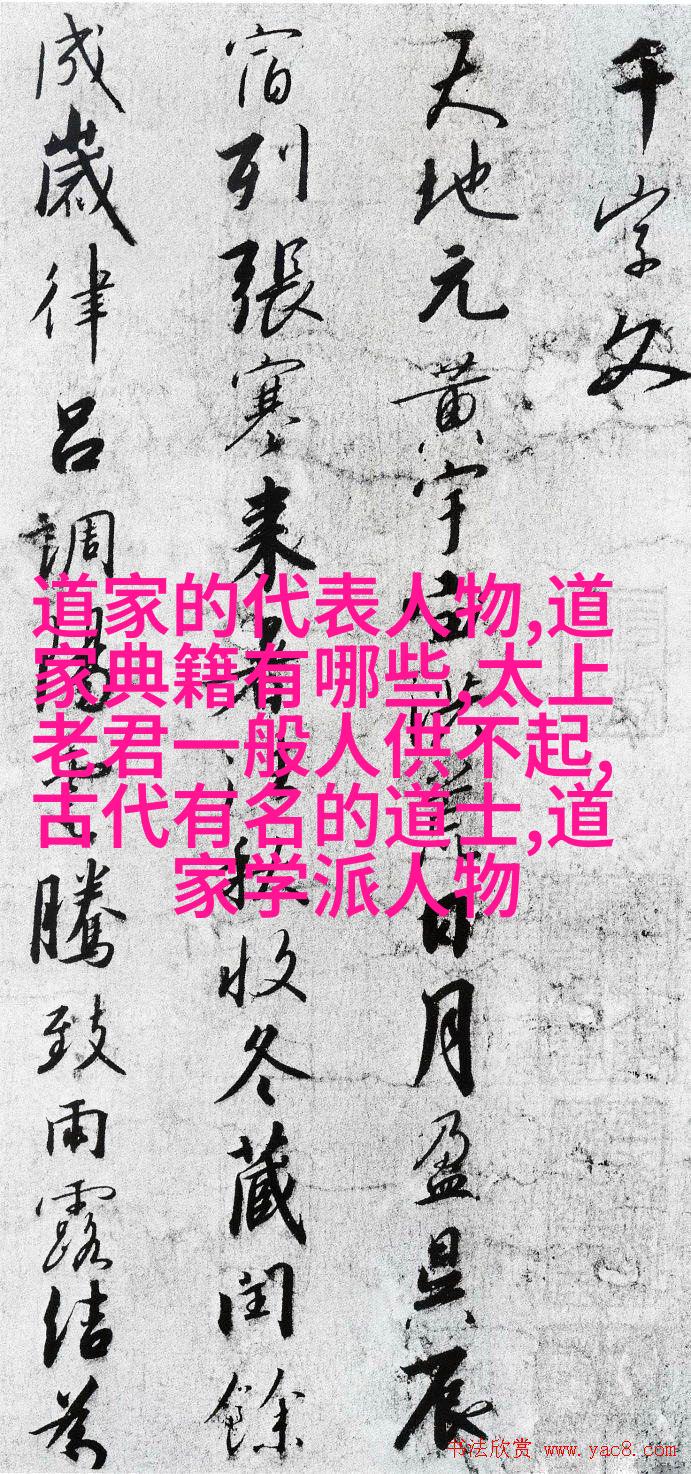 千字文
天地元黄宇日月盈昃辰
宿列張寒来秋收冬藏閏餘
成歲律吕調騰致雨露結為
道家的代表人物,道
家典籍有哪些,太上
老君一般人供不起,
古代有名的道士,道
家学派人物
书法欣赏 www.yac8.com